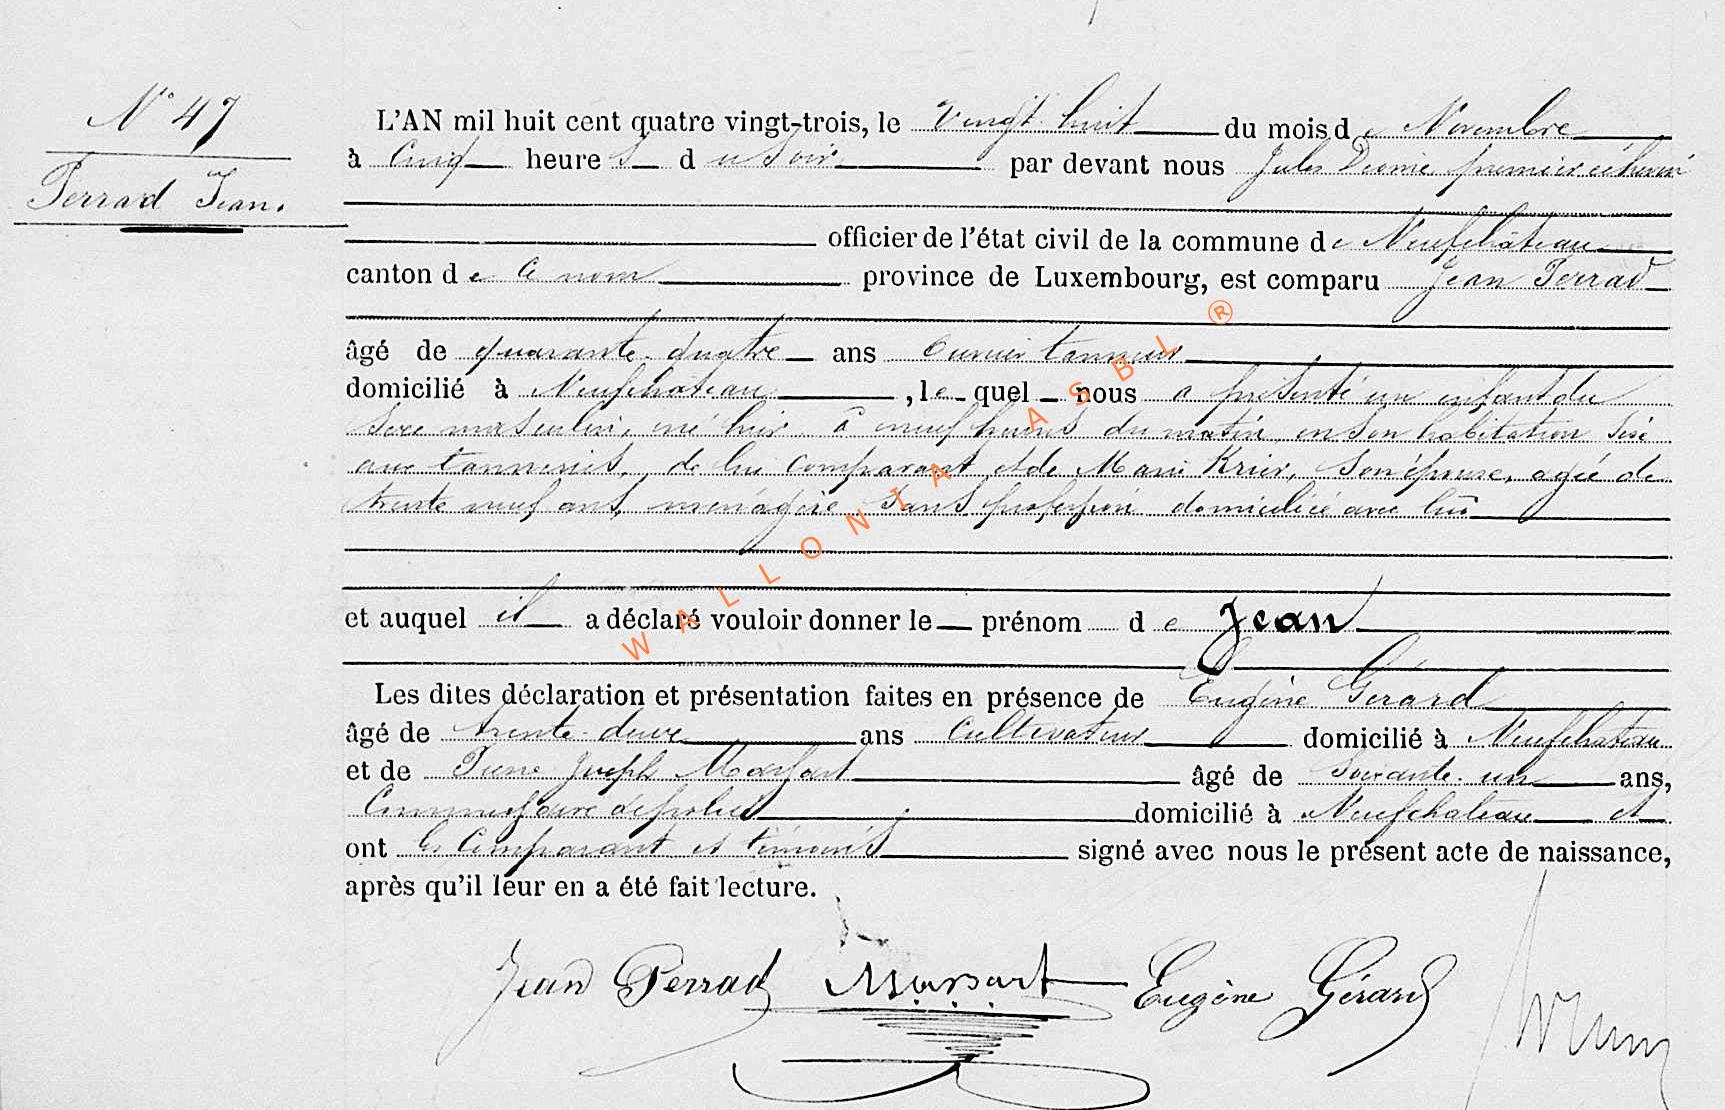 N° 47
Perrad Jean.
L'AN mil huit cent quatre vingt-trois, le vingt huit du mois de Novembre
à Cinq heures du Soir par devant nous Jules premier échevin
officier de l'état civil de la commune de Neufchâteau
canton de ce nom province de Luxembourg, est comparu Jean Perrad
âgé de quarante-quatre ans ouvrier tanneur
domicilié à Neufchâteau, lequel nous a présenté un enfant du
sexe masculin, né hier à neuf heures du matin, en son habitation sise
aux tanneries, de lui comparant et de Marie Krier, son épouse, agée de
trente neuf ans, ménagère sans profession domiciliée avec lui
et auquel il a déclaré vouloir donner le prénom de Jean
Les dites déclaration et présentation faites en présence de Eugène Gérard
âgé de trente-deux ans cultivateur domicilié à Neufchateau
et de Pierre Joseph Massart âgé de soixante-un ans,
Commissaire de police domicilié à Neufchateau et
ont les Comparant et témoins signé avec nous le présent acte de naissance,
après qu'il leur en a été fait lecture.
Jean Perrad Massart Eugène Gérard
WALLONIA ASBL ®